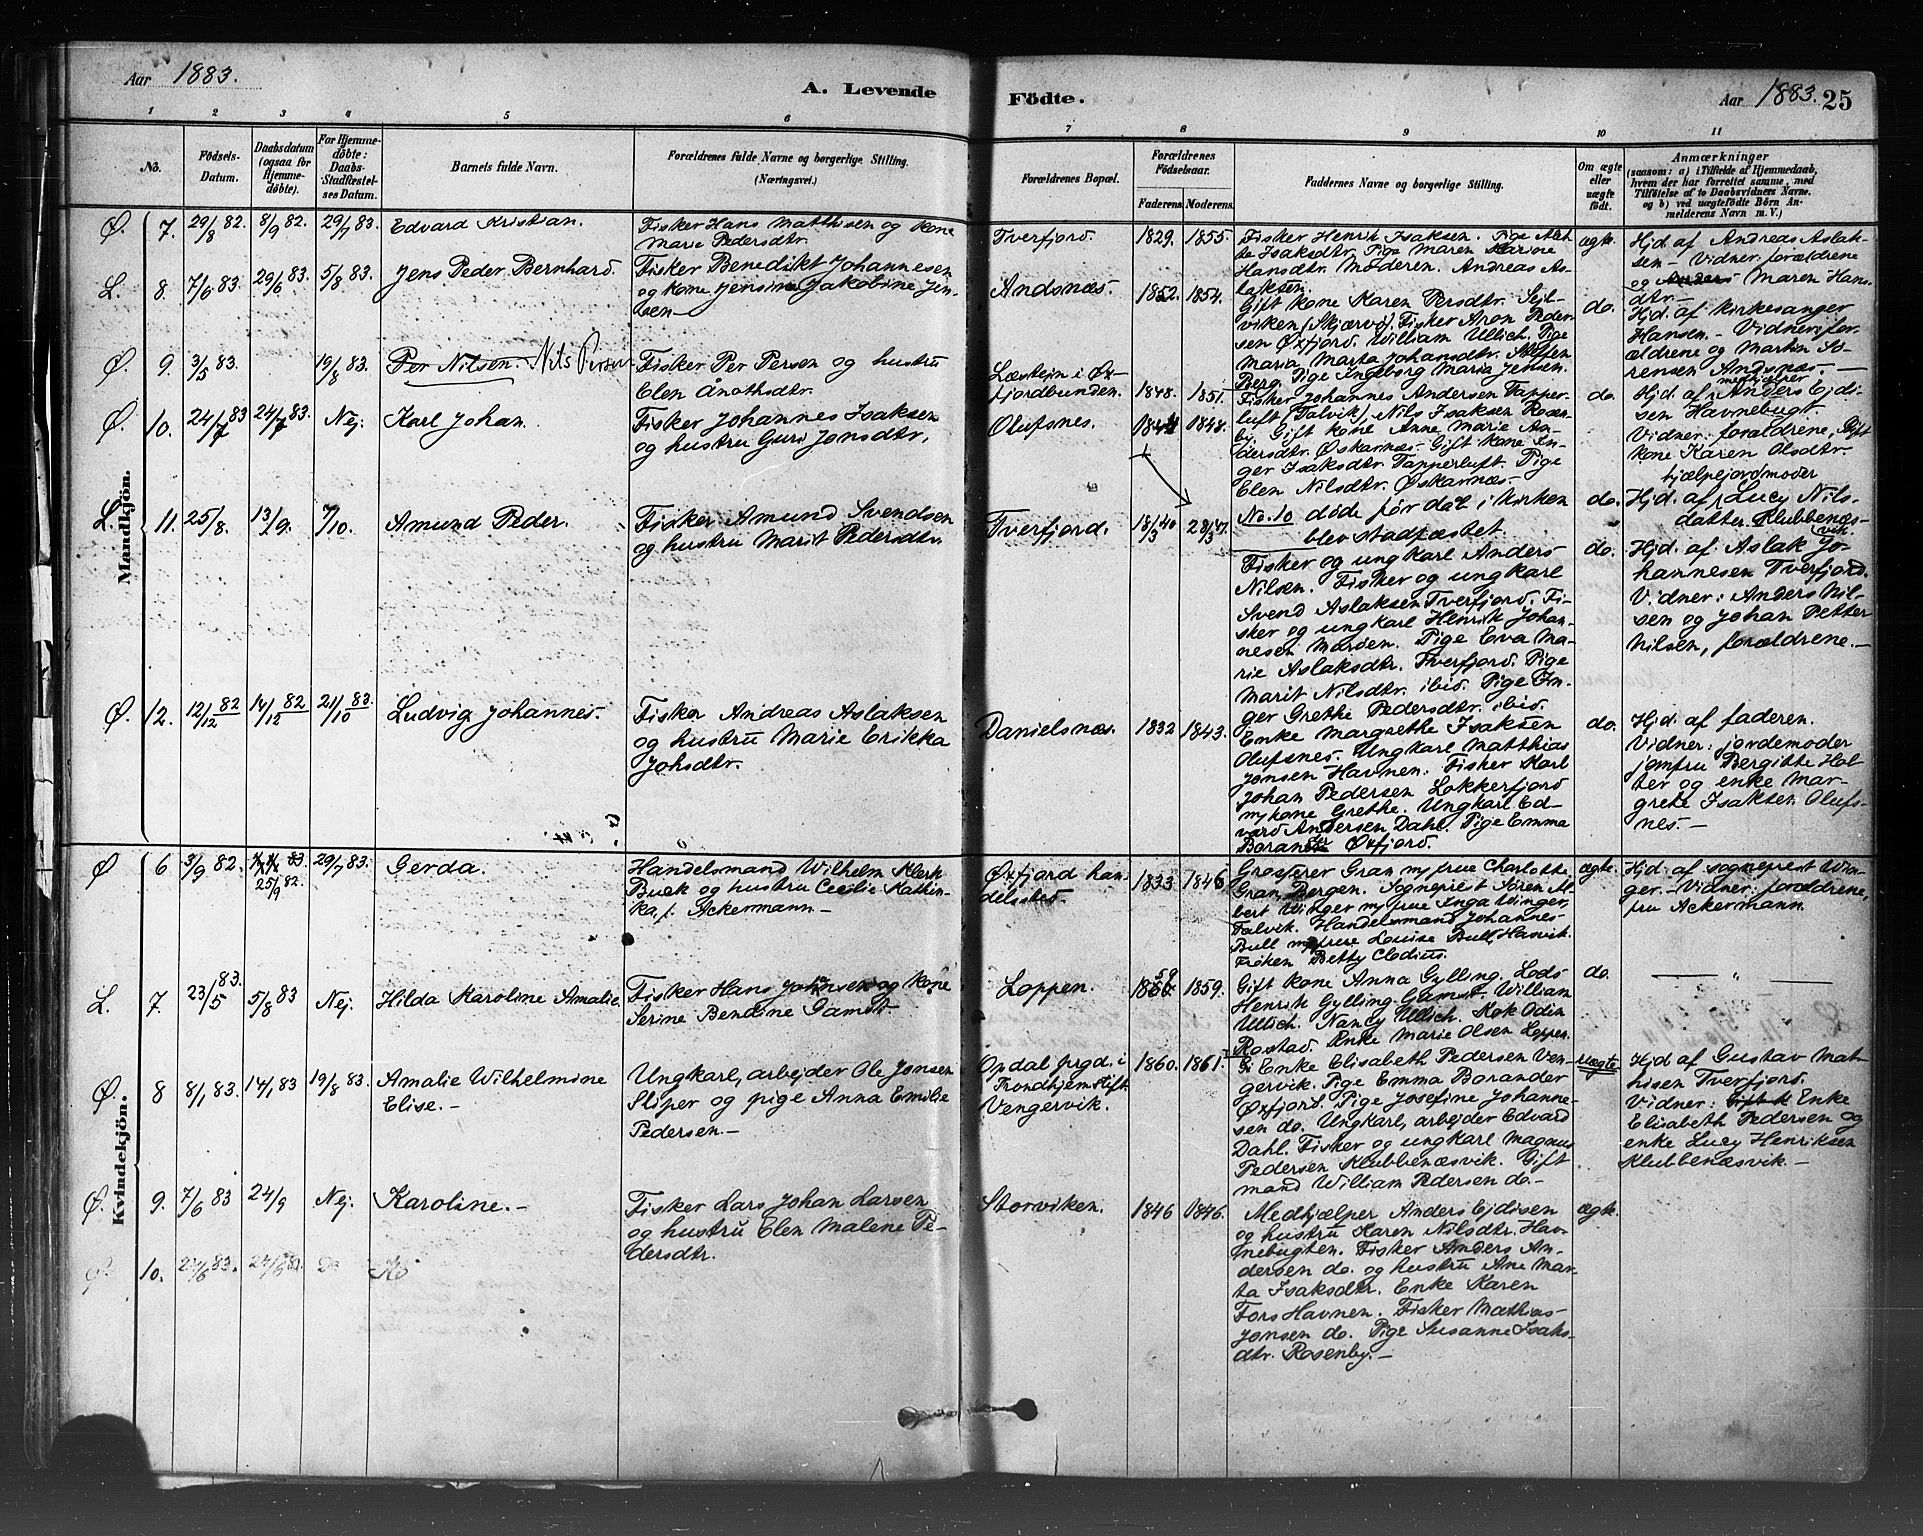 Aar 1883.
A. Levende
Födte.
Aar 1883. 25
1 2 3 4 5 6 7 8 9 10 11
No.
Födsels-Datum.
Daabsdatum (ogsaa for Hjemmedöbte).
For Hjemmedöbte: Daabs-Stadfæstelses Datum.
Barnets fulde Navn.
Forældrenes fulde Navne og borgerlige Stilling. (Næringsvei.)
Forældrenes Bopæl.
Forældrenes Födselsaar.
Faderens. Moderens.
Faddernes Navne og borgerlige Stilling.
Om ægte eller uægte födt.
Anmærkninger
(saasom: a) i Tilfælde af Hjemmedaab, hvem der har forrettet samme, med Tilföielse af to Daabsvidners Navne. og b) ved uægtefödte Börn Anmelderens Navn m. V.)
Mandkjön.
Ø. 7. 29/8 82. 8/9 82. 29/7 83. Edvard Kristian.
Fisker Hans Mathisen og kone
Marie Pedersdtr.
Tverfjord. 1829. 1855.
Fisker Henrik Isaksen. Pige
Isaksdtr. Pige Maren Karine
Hansdtr. Moderen. Andreas As-
laksen.
ægte.
Hjd. af Andreas Aslak-
sen - Vidner forældrene
og Maren Hans-
dtr. -
L. 8. 7/6 83. 29/6 83. 5/8 83. Jens Peder Bernhard.
Fisker Benedikt Johannesen
og kone Jensine Jakobine Jen-
sen -
Andsnæs. 1852. 1854.
Gift kone Karen Persdtr. Sejl-
viken (Skjærvö). Fisker Aron Peder-
sen Øxfjord. William Ullich. Pige
Maria Marta Johansdtr.
Berg. Pige Ingeborg Maria Jensen.
do.
Hjd. af kirkesanger
Hansen - Vidner: for-
ældrene og Martin So-
rensen Andsnæs. -
Ø. 9. 3/5 83. 19/8 83. Per Nilsen. Nils Persen
Fisker Per Persen og hustru
Elen Ånothsdtr.
Læstein i Øx-
fjordbunden. 1848. 1851.
Fisker Johannes Andersen Tapper-
luft Talvik. Nils Isaksen Rosen-
by. Gift kone Anne Marie An-
dersdtr. Øskarnæs. Gift kone In-
ger Isaksdtr. Tapperluft. Pige
Elen Nilsdtr. Øskarnæs. -
do.
Hjd. af medhjælper Anders Ejdi-
sen Havnebugt.
Vidner: forældrene, Gift
kone Karen Olsdtr.
Ø. 10. 24/7 83 24/7 83. Nej. Karl Johan.
Fisker Johannes Isaksen
og hustru Guri Jonsdtr.
Olufsnes. 1848.
No. 10 døde før daab i kirken
blev stadfæstet.
do.
hjælpejordmoder
Hjd. af Lucy Nils-
datter. Klubbenæs-
vik.
L. 11. 25/8. 13/9. 7/10. Amund Peder.
Fisker Amund Svendsen
og hustru Marit Pedersdtr.
Tverfjord. 18/3 40 28/3 47.
Fisker og ungkarl Anders
Nilsen. Fisker og ungkarl
Svend Aslaksen Tverfjord. Fi-
sker og ungkarl Henrik Johan-
nesen Marøen. Pige Eva Ma-
rie Aslaksdtr. Tverfjord. Pige
Marit Nilsdtr. ibid. Pige In-
ger Grethe Pedersdtr. ibid.
do.
Hjd. af Aslak Jo-
hannesen Tverfjord.
Vidner: Anders Nil-
sen og Johan Petter
Nilsen, forældrene. -
Ø. 12. 12/12 82 14/12 82 21/10 83. Ludvig Johannes.
Fisker Andreas Aslaksen
og hustru Marie Erikka
Johsdtr.
Danielsnæs. 1832 1843.
Enke Margrethe Isaksen
Olufsnes. Ungkarl Matthias
Jonsen Havnen. Fisker Karl
Johan Pedersen Lokkerfjord
m/kone Grethe. Ungkarl Ed-
vard Andersen Dahl. Pige Emma
Borander Øxfjord.
do.
Hjd. af faderen.
Vidner: jordemoder
jomfru Bergitte Hol-
ter og enke Mar-
grete Isaksen Olufs-
nes. -
Kvindekjön.
Ø 6 3/9 82. 25/9 82. 29/7 83. Gerda.
Handelsmand Wilhelm Klerk
Buck og hustru Cecilie Kathin-
ka, f. Ackermann -
Øxfjord han-
delssted. 1833 1846
Grosserer Gran m/frue Charlotte
Gran, Bergen. Sogneprest Sören Al-
bert Winger m/frue Inga Winger,
Talvik. Handelsmand Johannes
Bull m/frue Louise Bull, Hasvik.
Frøken Betty Clodius.
ægte.
Hjd. af sogneprest Win-
ger - Vidner: forældrene,
fru Ackermann.
L. 7. 23/5 83. 5/8 83 Nej. Hilda Karoline Amalie.
Fisker Hans Johnsen og kone
Serine Bendine Gamst
Loppen. 59 1859.
Gift kone Anna Gylling. Lods
Henrik Gylling. Gamst. William
Ullich. Nancy Ullich. Kok Odin
Rostad. Enke Marie Olsen Loppen.
do.
— " —
Ø. 8 8/1 83. 14/1 83 19/8 83. Amalie Wilhelmine
Elise. -
Ungkarl, arbejder Ole Jonsen
Sliper og pige Anna Emilie
Pedersen. -
Opdal prgd. i
Trondhjems stift
Vengervik. 1860. 1861.
Enke Elisabeth Pedersen Ven-
gervik. Pige Emma Borander
Øxfjord. Pige Josefine Johanne-
sen do. Ungkarl, arbejder Edvard
Dahl. Fisker og ungkarl Magnus
Pedersen Klubbenæsvik. Gift
mand William Pedersen do. -
uægte
Hjd af Gustav Mat-
hisen Tverfjord.
Vidner: Enke
Elisabeth Pedersen og
enke Lucy Henriksen
Klubbenæsvik. -
Ø. 9. 7/6 83 24/9 Nej. Karoline. -
Fisker Lars Johan Larsen
og hustru Elen Malene Pe-
dersdtr.
Storviken. 1846 1846.
Medhjælper Anders Ejdisen
og hustru Karen Nilsdtr. Hav-
nebugten. Fisker Anders An-
dersen do. og hustru Ane Mar-
ta Isaksdtr. Enke Karen
Fors Havnen. Fisker Mathias
Jonsen do. Pige Susanne Isaks-
dtr. Rosenby. -
ægte.
10.